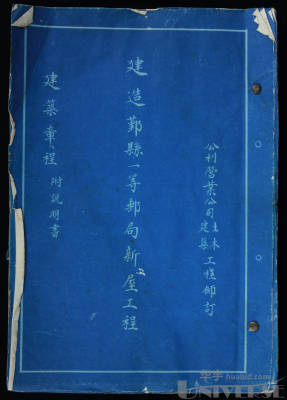 公利營業公司土木建築工程師訂
建造鄞縣一等郵局新屋工程
建築章程 附說明書
华宇 huabid.com
UNIVERSE